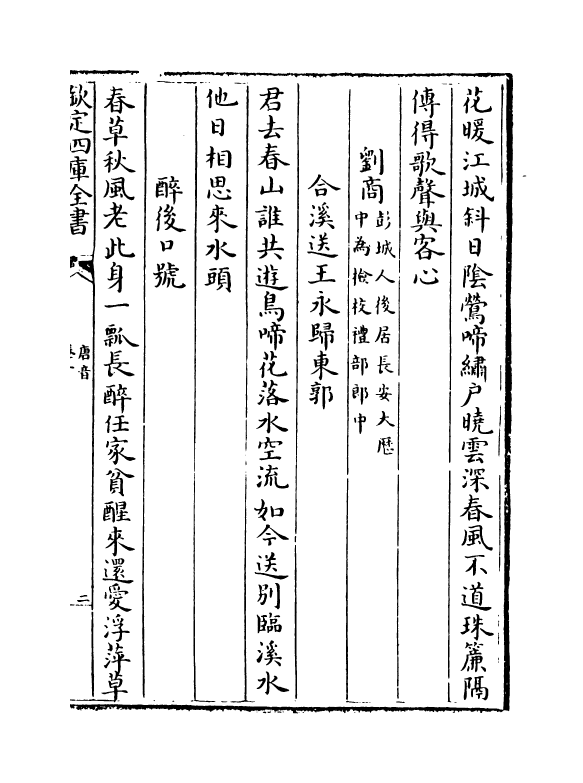 花暖江城斜日陰鶯啼繡户曉雲深春風不道珠簾隔
傳得歌聲與客心
劉商
彭城人後居長安大厯
中為檢校禮部郎中
合溪送王永歸東郭
君去春山誰共遊鳥啼花落水空流如今送別臨溪水
他日相思來水頭
醉後口號
春草秋風老此身一瓢長醉任家貧醒來還愛浮萍草
欽定四庫全書
唐音
二